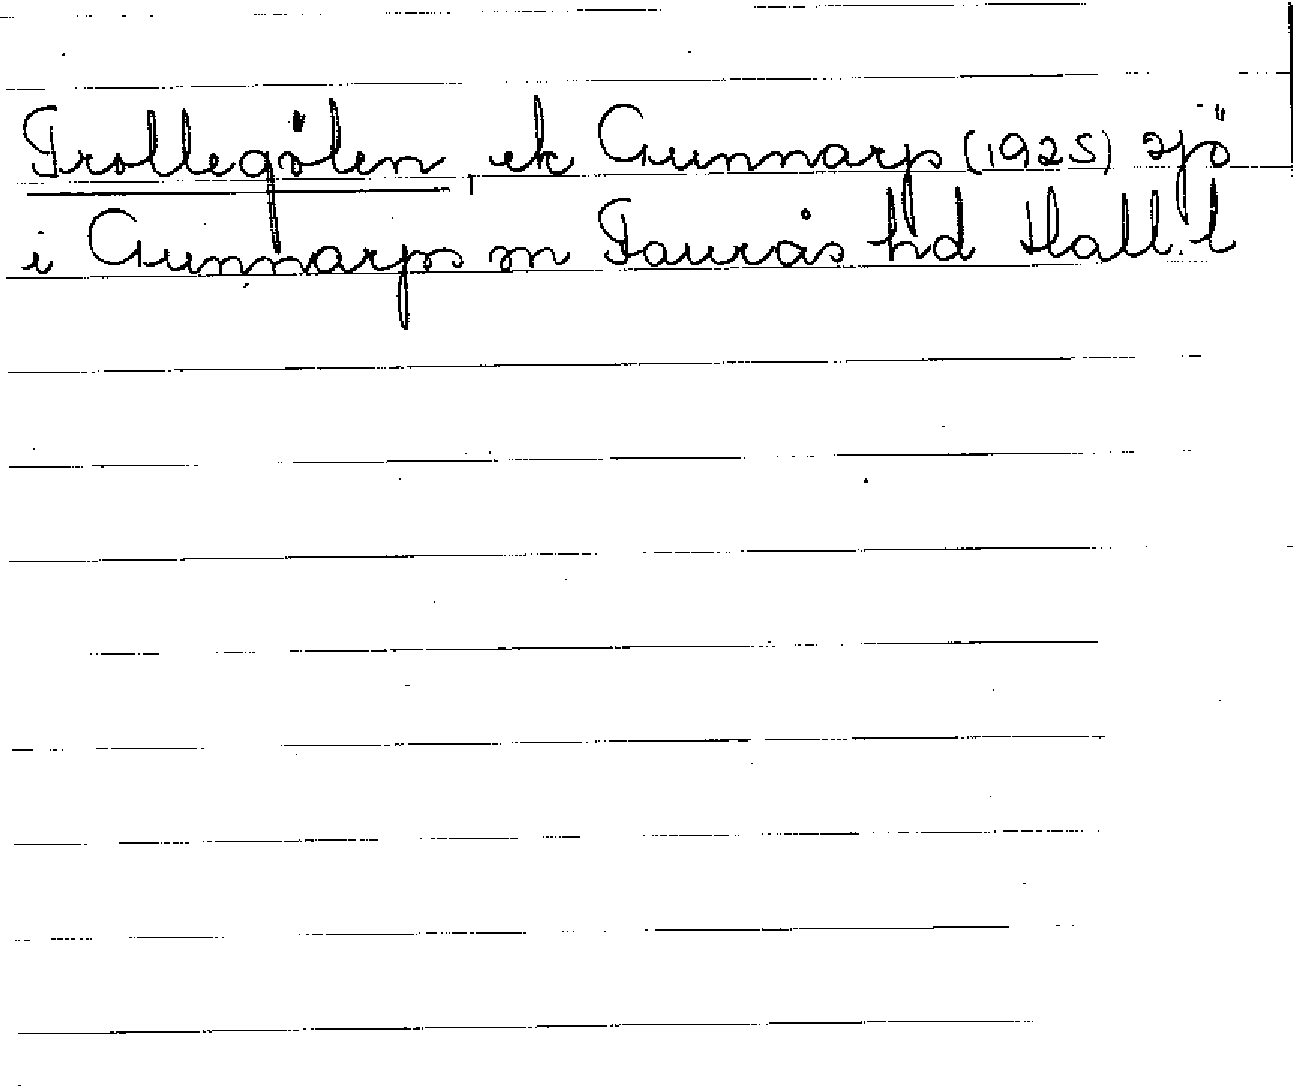 Trollegölen, ek Gunnarp (1925) sjö
i Gunnarps sn Faurås hd Hall. l